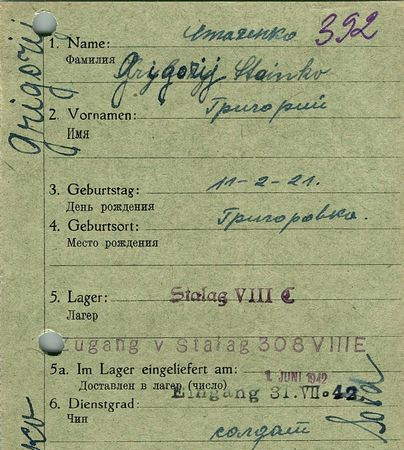 1. Name: Стаченко 392
Фамилия
Grigorij Stainko
2. Vornamen: Григорий
Имя
Grigorij
3. Geburtstag: 11-2-21.
День рождения
4. Geburtsort: Григоровка.
Место рождения
5. Lager: Stalag VIII C
Лагер
Zugang v Stalag 308 VIIIE
5a. Im Lager eingeliefert am: 1. JUNI 1942
Доставлен в лагер (число) Eingang 31. VII. 42.
6. Dienstgrad:
Чин
солдат